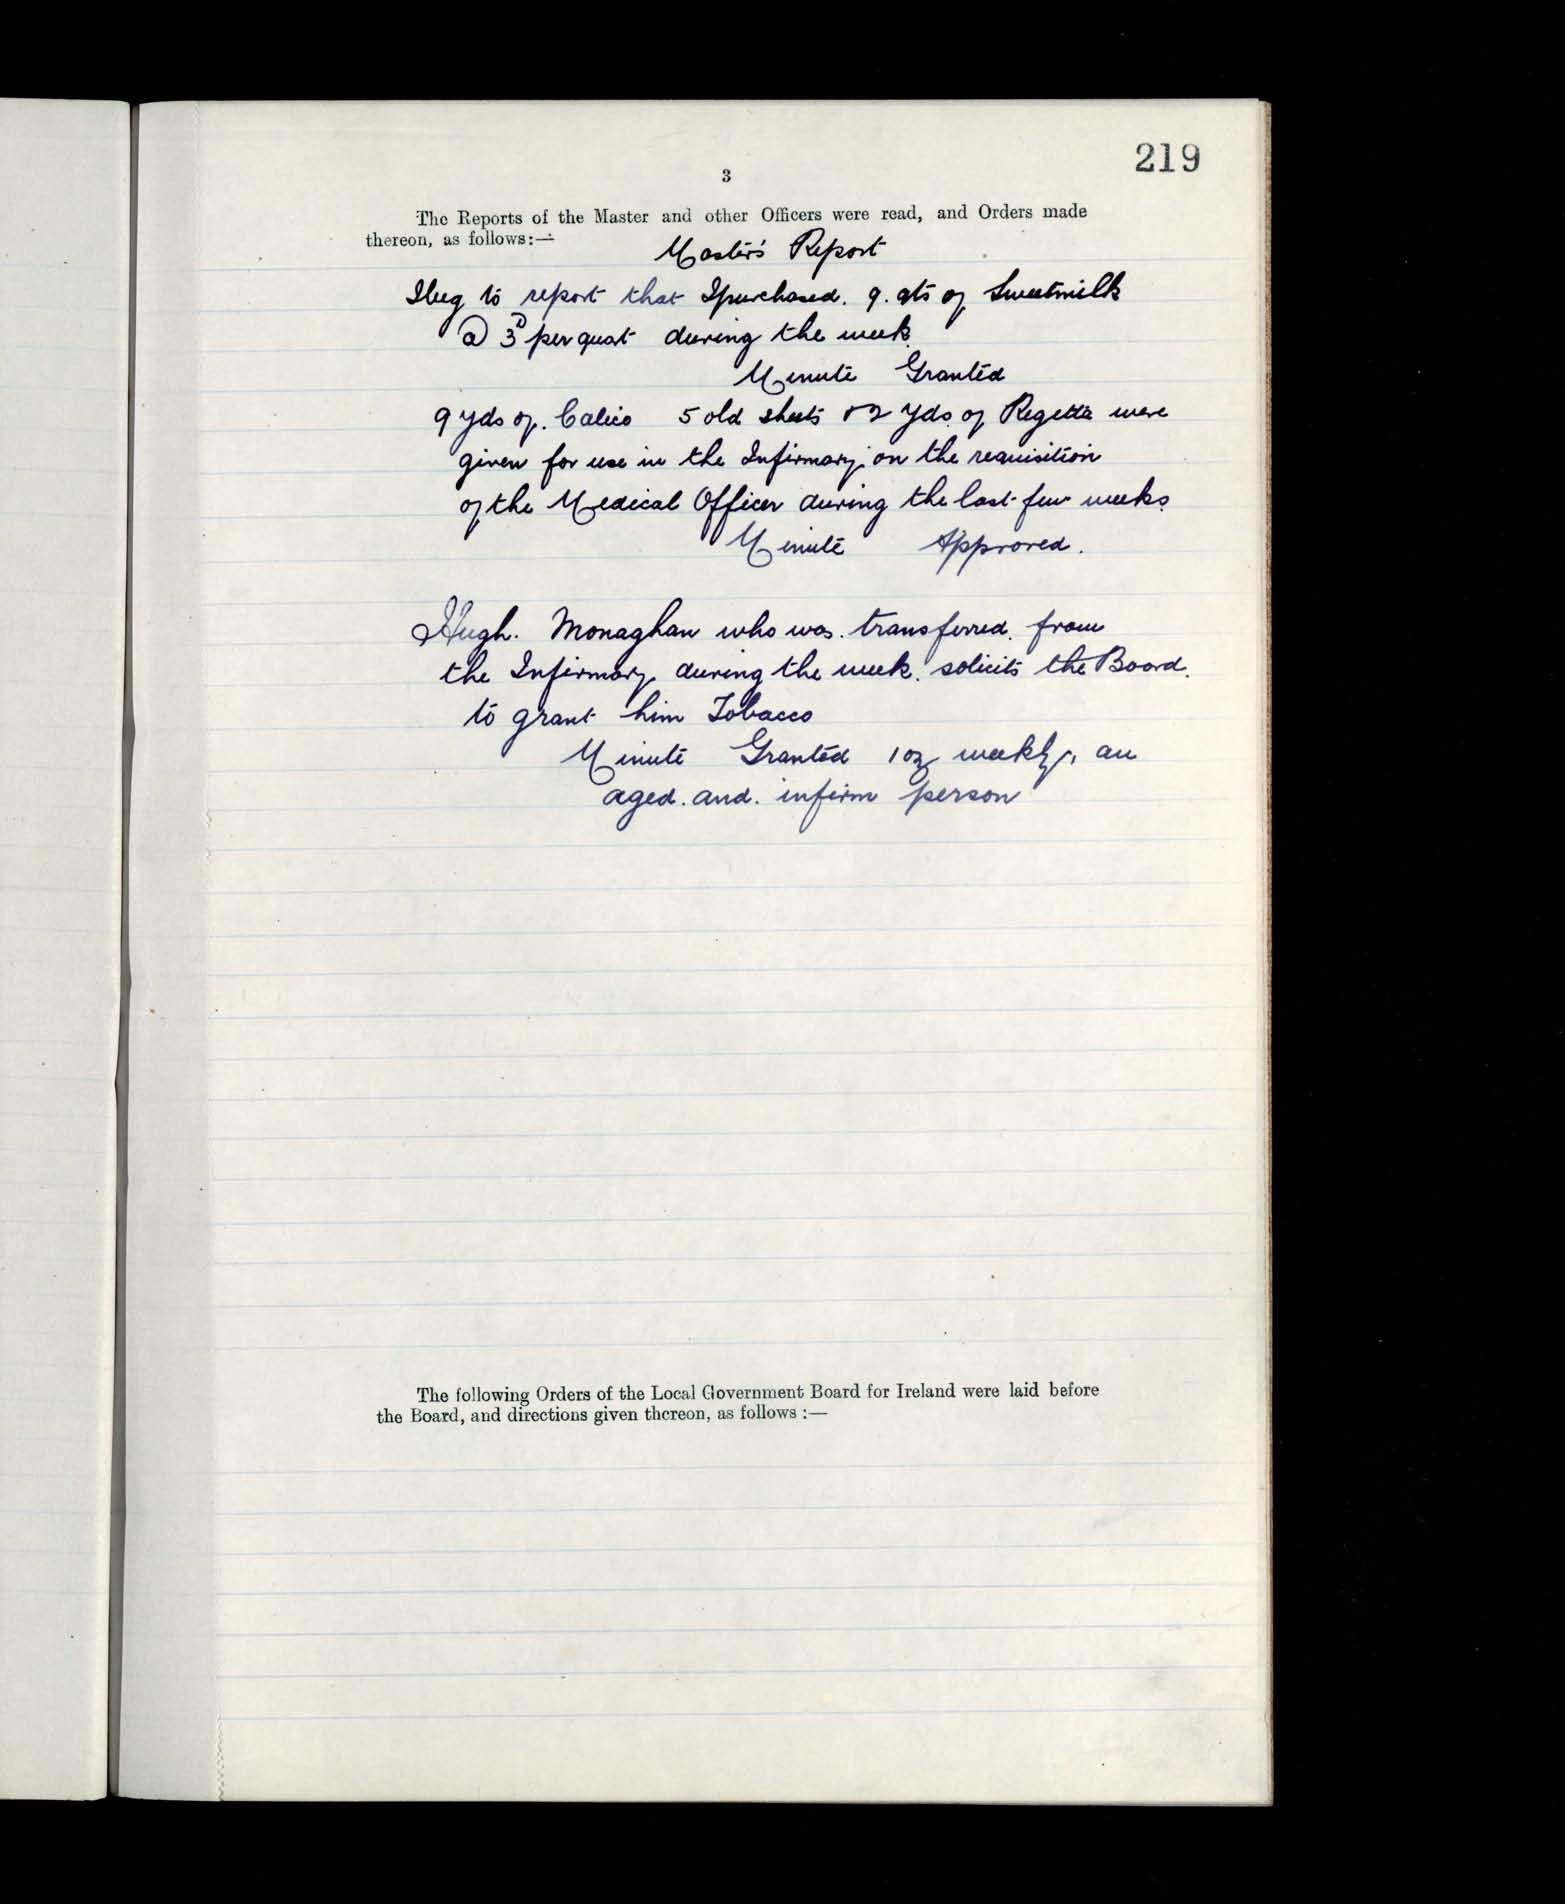 219
3
The Reports of the Master and other Officers were read, and Orders made
thereon, as follows:—
Master's Report
I beg to report that I purchased. 9. qts of Sweetmilk
@ 3D per quat during the week.
Minute Granted
9 yds of. Calico 5 old sheets & 2 yds. of Regetta were
given for use in the Infirmary on the requisition
of the Medical Officer during the last few weeks.
Minute Approved.
Hugh. Monaghan who was. transferred. from
the Infirmary during the week. solicits the Board.
to grant him Tobacco
Minute Granted 1 oz weekly, an
aged. and. infirm person
The following Orders of the Local Government Board for Ireland were laid before
the Board, and directions given thereon, as follows :—